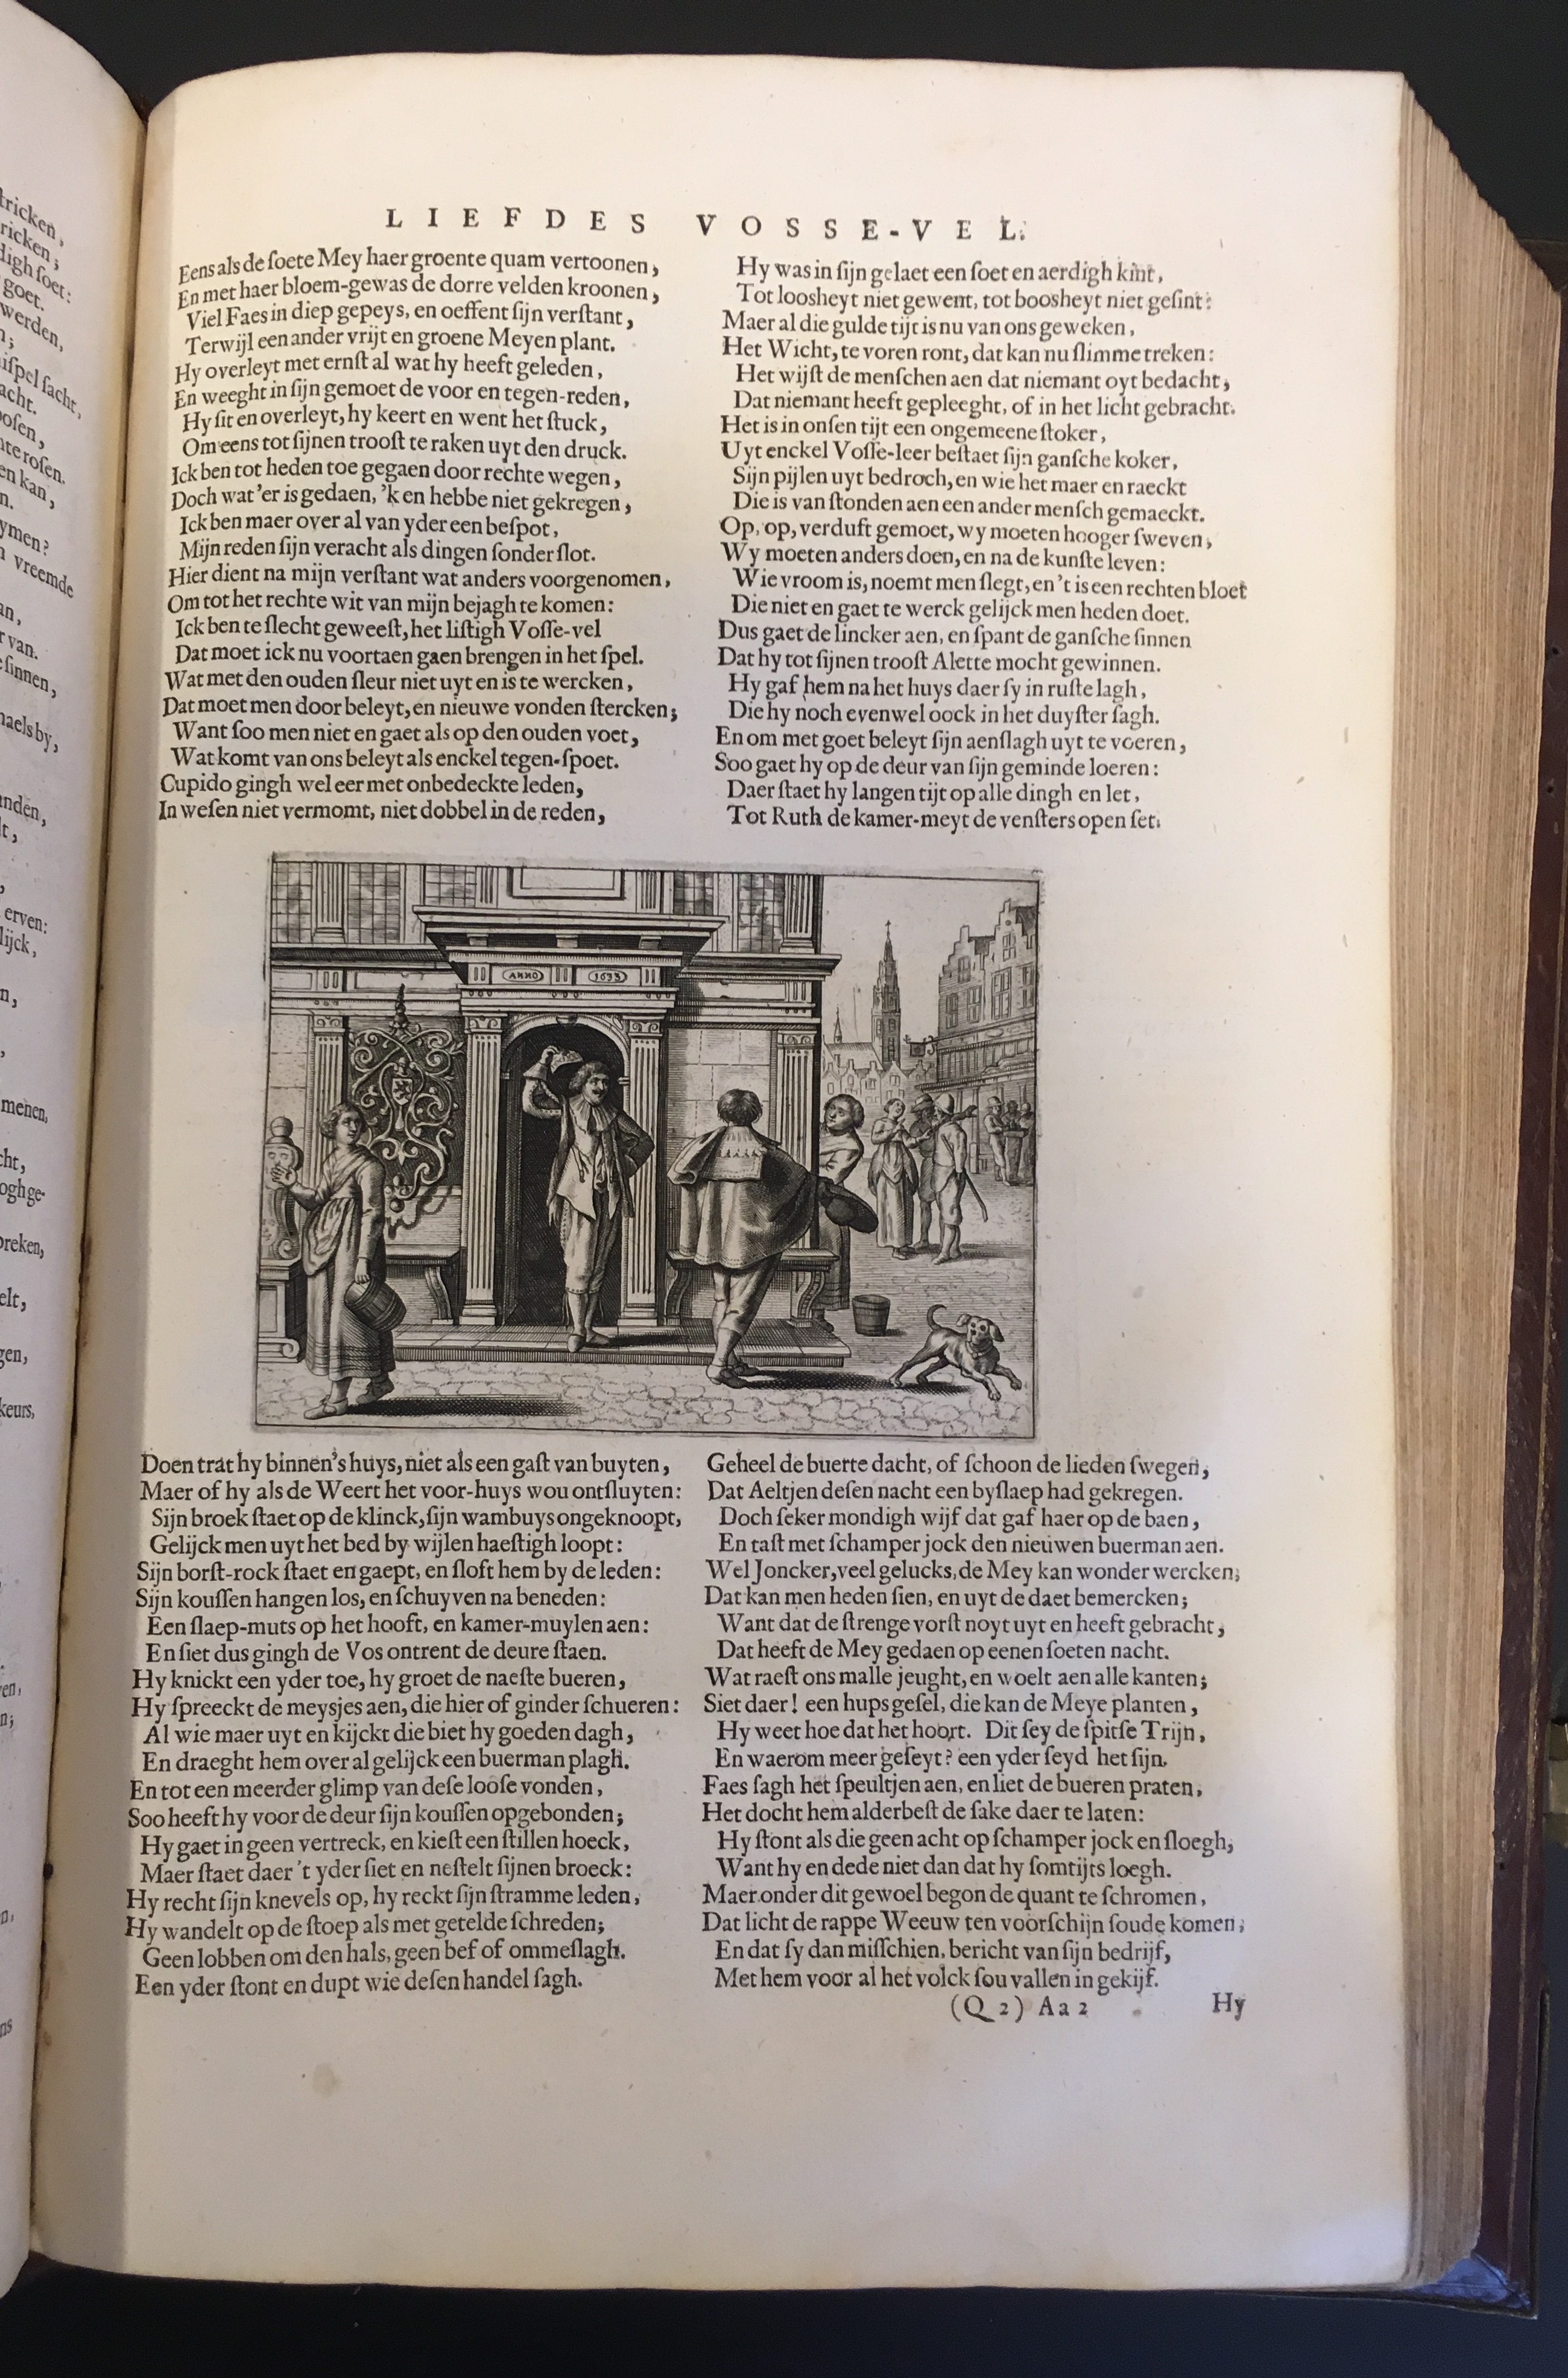 LIEFDES VOSSE-VEL.
Eens als de soete Mey haer groente quam vertoonen,
En met haer bloem-gewas de dorre velden kroonen,
Viel Faes in diep gepeys, en oeffent sijn verstant,
Terwijl een ander vrijt en groene Meyen plant.
Hy overleyt met ernst al wat hy heeft geleden,
En weeght in sijn gemoet de voor en tegen-reden,
Hy sit en overleyt, hy keert en went het stuck,
Om eens tot sijnen troost te raken uyt den druck.
Ick ben tot heden toe gegaen door rechte wegen,
Doch wat 'er is gedaen, 'k en hebbe niet gekregen,
Ick ben maer over al van yder een bespot,
Mijn reden sijn veracht als dingen sonder slot.
Hier dient na mijn verstant wat anders voorgenomen,
Om tot het rechte wit van mijn bejagh te komen:
Ick ben te slecht geweest, het listigh Vosse-vel
Dat moet ick nu voortaen gaen brengen in het spel.
Wat met den ouden sleur niet uyt en is te wercken,
Dat moet men door beleyt, en nieuwe vonden stercken;
Want soo men niet en gaet als op den ouden voet,
Wat komt van ons beleyt als enckel tegen-spoet.
Cupido gingh wel eer met onbedeckte leden,
In wesen niet vermomt, niet dobbel in de reden,
Hy was in sijn gelaet een soet en aerdigh kint,
Tot loosheyt niet gewent, tot boosheyt niet gesint:
Maer al die gulde tijt is nu van ons geweken,
Het Wicht, te voren ront, dat kan nu slimme treken:
Het wijst de menschen aen dat niemant oyt bedacht,
Dat niemant heeft gepleeght, of in het licht gebracht.
Het is in onsen tijt een ongemeene stoker,
Uyt enckel Vosse-leer bestaet sijn gansche koker,
Sijn pijlen uyt bedroch, en wie het maer en raeckt
Die is van stonden aen een ander mensch gemaeckt.
Op, op, verduft gemoet, wy moeten hooger sweven,
Wy moeten anders doen, en na de kunste leven:
Wie vroom is, noemt men slegt, en 't is een rechten bloet
Die niet en gaet te werck gelijck men heden doet.
Dus gaet de lincker aen, en spant de gansche sinnen
Dat hy tot sijnen troost Alette mocht gewinnen.
Hy gaf hem na het huys daer sy in ruste lagh,
Die hy noch evenwel oock in het duyster sagh.
En om met goet beleyt sijn aenslagh uyt te voeren,
Soo gaet hy op de deur van sijn geminde loeren:
Daer staet hy langen tijt op alle dingh en let,
Tot Ruth de kamer-meyt de vensters open set.
ANNO 1633
Doen trat hy binnen's huys, niet als een gast van buyten,
Maer of hy als de Weert het voor-huys wou ontsluyten:
Sijn broek staet op de klinck, sijn wambuys ongeknoopt,
Gelijck men uyt het bed by wijlen haestigh loopt:
Sijn borst-rock staet en gaept, en sloft hem by de leden:
Sijn koussen hangen los, en schuyven na beneden:
Een slaep-muts op het hooft, en kamer-muylen aen:
En siet dus gingh de Vos ontrent de deure staen.
Hy knickt een yder toe, hy groet de naeste bueren,
Hy spreeckt de meysjes aen, die hier of ginder schueren:
Al wie maer uyt en kijckt die biet hy goeden dagh,
En draeght hem over al gelijck een buerman plagh.
En tot een meerder glimp van dese loose vonden,
Soo heeft hy voor de deur sijn koussen opgebonden;
Hy gaet in geen vertreck, en kiest een stillen hoeck,
Maer staet daer 't yder siet en nestelt sijnen broeck:
Hy recht sijn knevels op, hy reckt sijn stramme leden,
Hy wandelt op de stoep als met getelde schreden;
Geen lobben om den hals, geen bef of ommeslagh.
Een yder stont en dupt wie desen handel sagh.
Geheel de buerte dacht, of schoon de lieden swegen,
Dat Aeltjen desen nacht een byslaep had gekregen.
Doch seker mondigh wijf dat gaf haer op de baen,
En tast met schamper jock den nieuwen buerman aen.
Wel Joncker, veel gelucks, de Mey kan wonder wercken,
Dat kan men heden sien, en uyt de daet bemercken;
Want dat de strenge vorst noyt uyt en heeft gebracht,
Dat heeft de Mey gedaen op eenen soeten nacht.
Wat raest ons malle jeught, en woelt aen alle kanten;
Siet daer! een hups gesel, die kan de Meye planten,
Hy weet hoe dat het hoort. Dit sey de spitse Trijn,
En waerom meer geseyt? een yder seyd het sijn.
Faes sagh het speultjen aen, en liet de bueren praten,
Het docht hem alderbest de sake daer te laten:
Hy stont als die geen acht op schamper jock en sloegh,
Want hy en dede niet dan dat hy somtijts loegh.
Maer onder dit gewoel begon de quant te schromen,
Dat licht de rappe Weeuw ten voorschijn soude komen,
En dat sy dan misschien, bericht van sijn bedrijf,
Met hem voor al het volck sou vallen in gekijf.
(Q 2) Aa 2 Hy